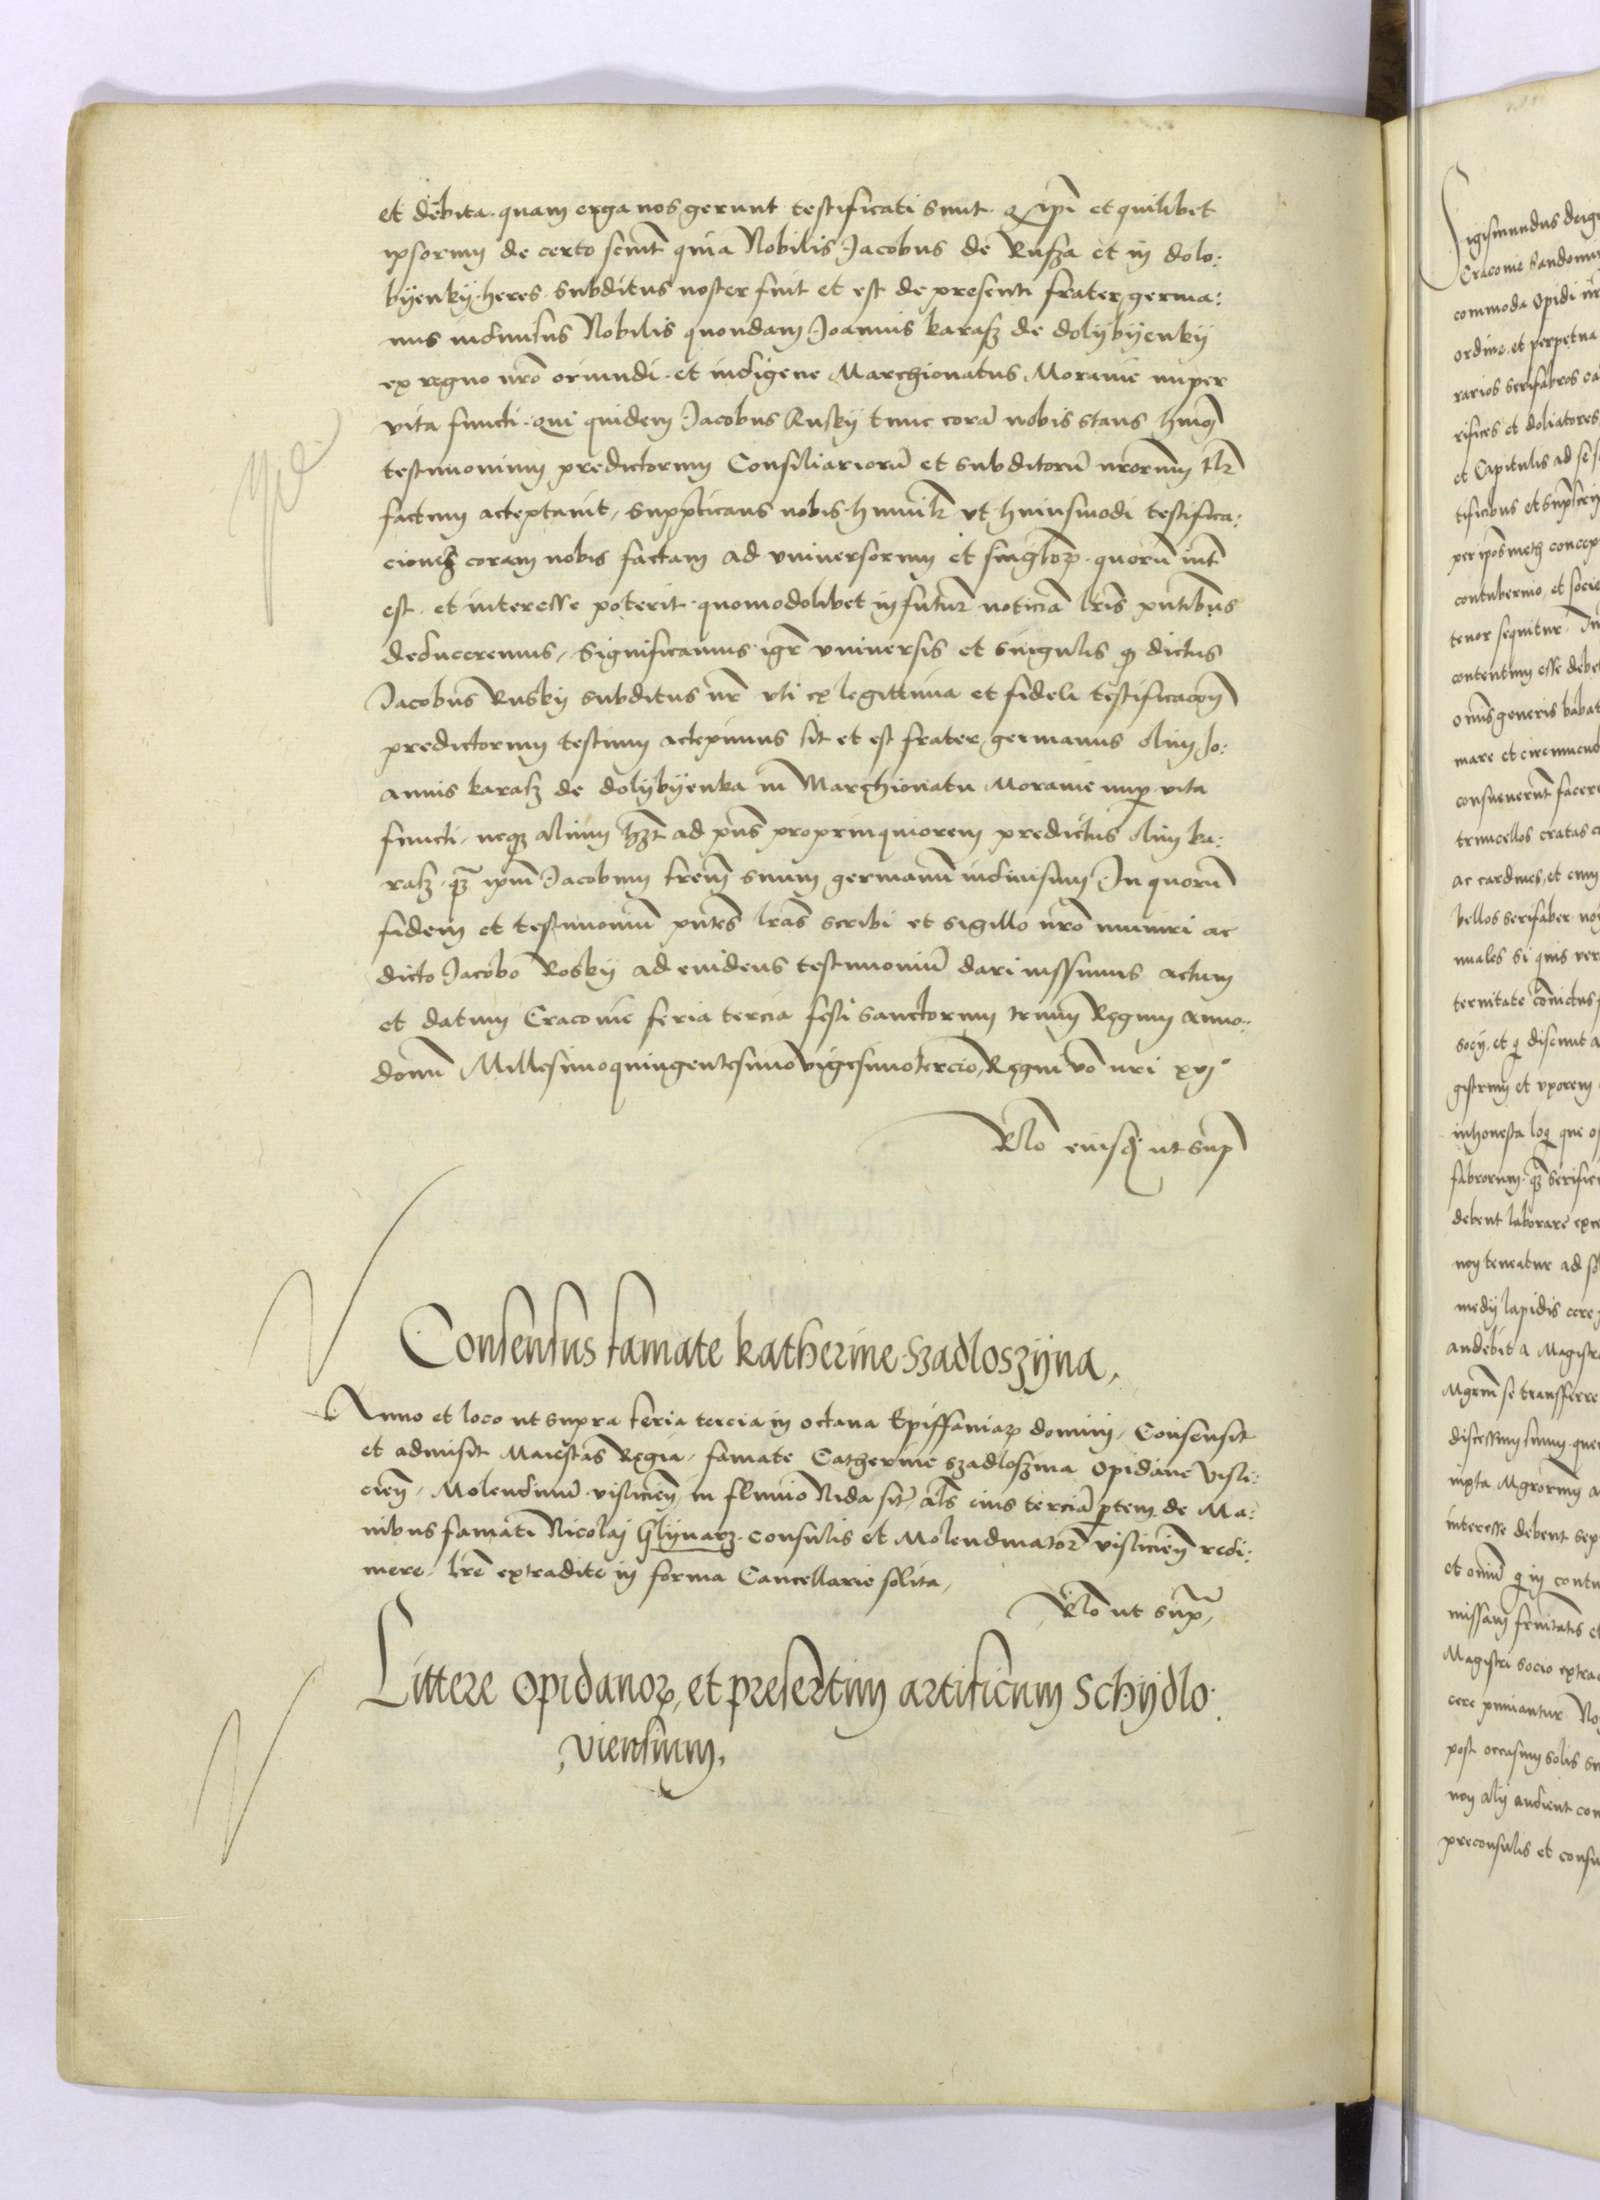 et debita quam erga nos gerunt testificati sunt qz ipi et quilibet
ipsorum de certo sciunt quia Nobilis Jacobus de Rusza et in dolo:
byenky heres subditus noster fuit et est de presenti frater germa:
nus indiuisus Nobilis quondam Joannis karasz de dolybyenky
ex regno nro oriundi et indigene Marchionatus Morauie nuper
vita functi. qui quidem Jacobus Rusky tunc cora nobis stans hmoi
testimonium predictorum Consiliarioru et subditoru nrorum
factum acceptauit, supplicans nobis humilr vt huiusmodi testifica:
cionem coram nobis factam ad vniuersorum et singlorz quoru int
est et interesse poterit quomodolibet in futur noticia lris pntibus
deduceremus, Significamus igr vniuersis et singulis qz dictus
Jacobus Rusky subditus nr vti ex legittima et fideli testificaconi
predictorum testium accepimus sit et est frater germanus olim Jo:
annis karasz de dolybyenka in Marchionatu Morauie nup vita
functi, neqz alium hzt ad pns proprinquiorem predictus olim ka:
rasz qz ipm Jacobum frem suum germanu indiuisum. In quoru
fidem et testimoniu pntes lras scribi et sigillo nro muniri ac
dicto Jacobo Rosky ad euidens testimoniu dari iussimus actum
et datum Cracouie feria tercia festi sanctorum trium Regum anno
domi Millesimoquingentesimovigesimotercio, Regni vo nri xvjº
Rlo eiusdz ut sup
Consensus famate katherine szadloszyna,
Anno et loco ut supra feria tercia in octaua Epiffaniarz domini, Consensit
et admisit Maiestas Regia, famate Catherine szadloszina opidane visli:
cien, Molendinu vislicien in fluuio Nida sit als eius tercia ptem de Ma:
nibus famati Nicolaj Glynarz consulis et Molendinator vislicien redi:
mere. lre extradite in forma Cancellarie solita,
Rlo ut sup,
Littere opidanorz, et presertim artificum Schydlo:
viensium,
Sigismundus dei g
Cracouie Sandomi
commoda Opidi nr
ordine et perpetua
rarios serifabros ca
rifices et doliatores
et Capitulis ad se
tificibus et supscri
per iposmetz concep
contubernio, et socie
tenor sequitur.
contentum esse debet
omis generis
mare et circumcud
consueuerunt facere
truncellos cratas
ac cardines, et
bellos serifaber non
nuales si quis ver
ternitate conictus
socij, et q discunt a
gistrum et vxorem
inhonesta loqz que
fabrorum qz serifici
debent laborare
non teneatur ad
medij lapidis cere
audebit a Magistr
Mgrm se transferre
discessum suum que
iuxta Mgrorum
interesse debent sep
et omiu q in contu
missam frnitatis et
Magistri socio extra
cere puniantur No
post occasum solis
non alij audient con
preconsulis et consu